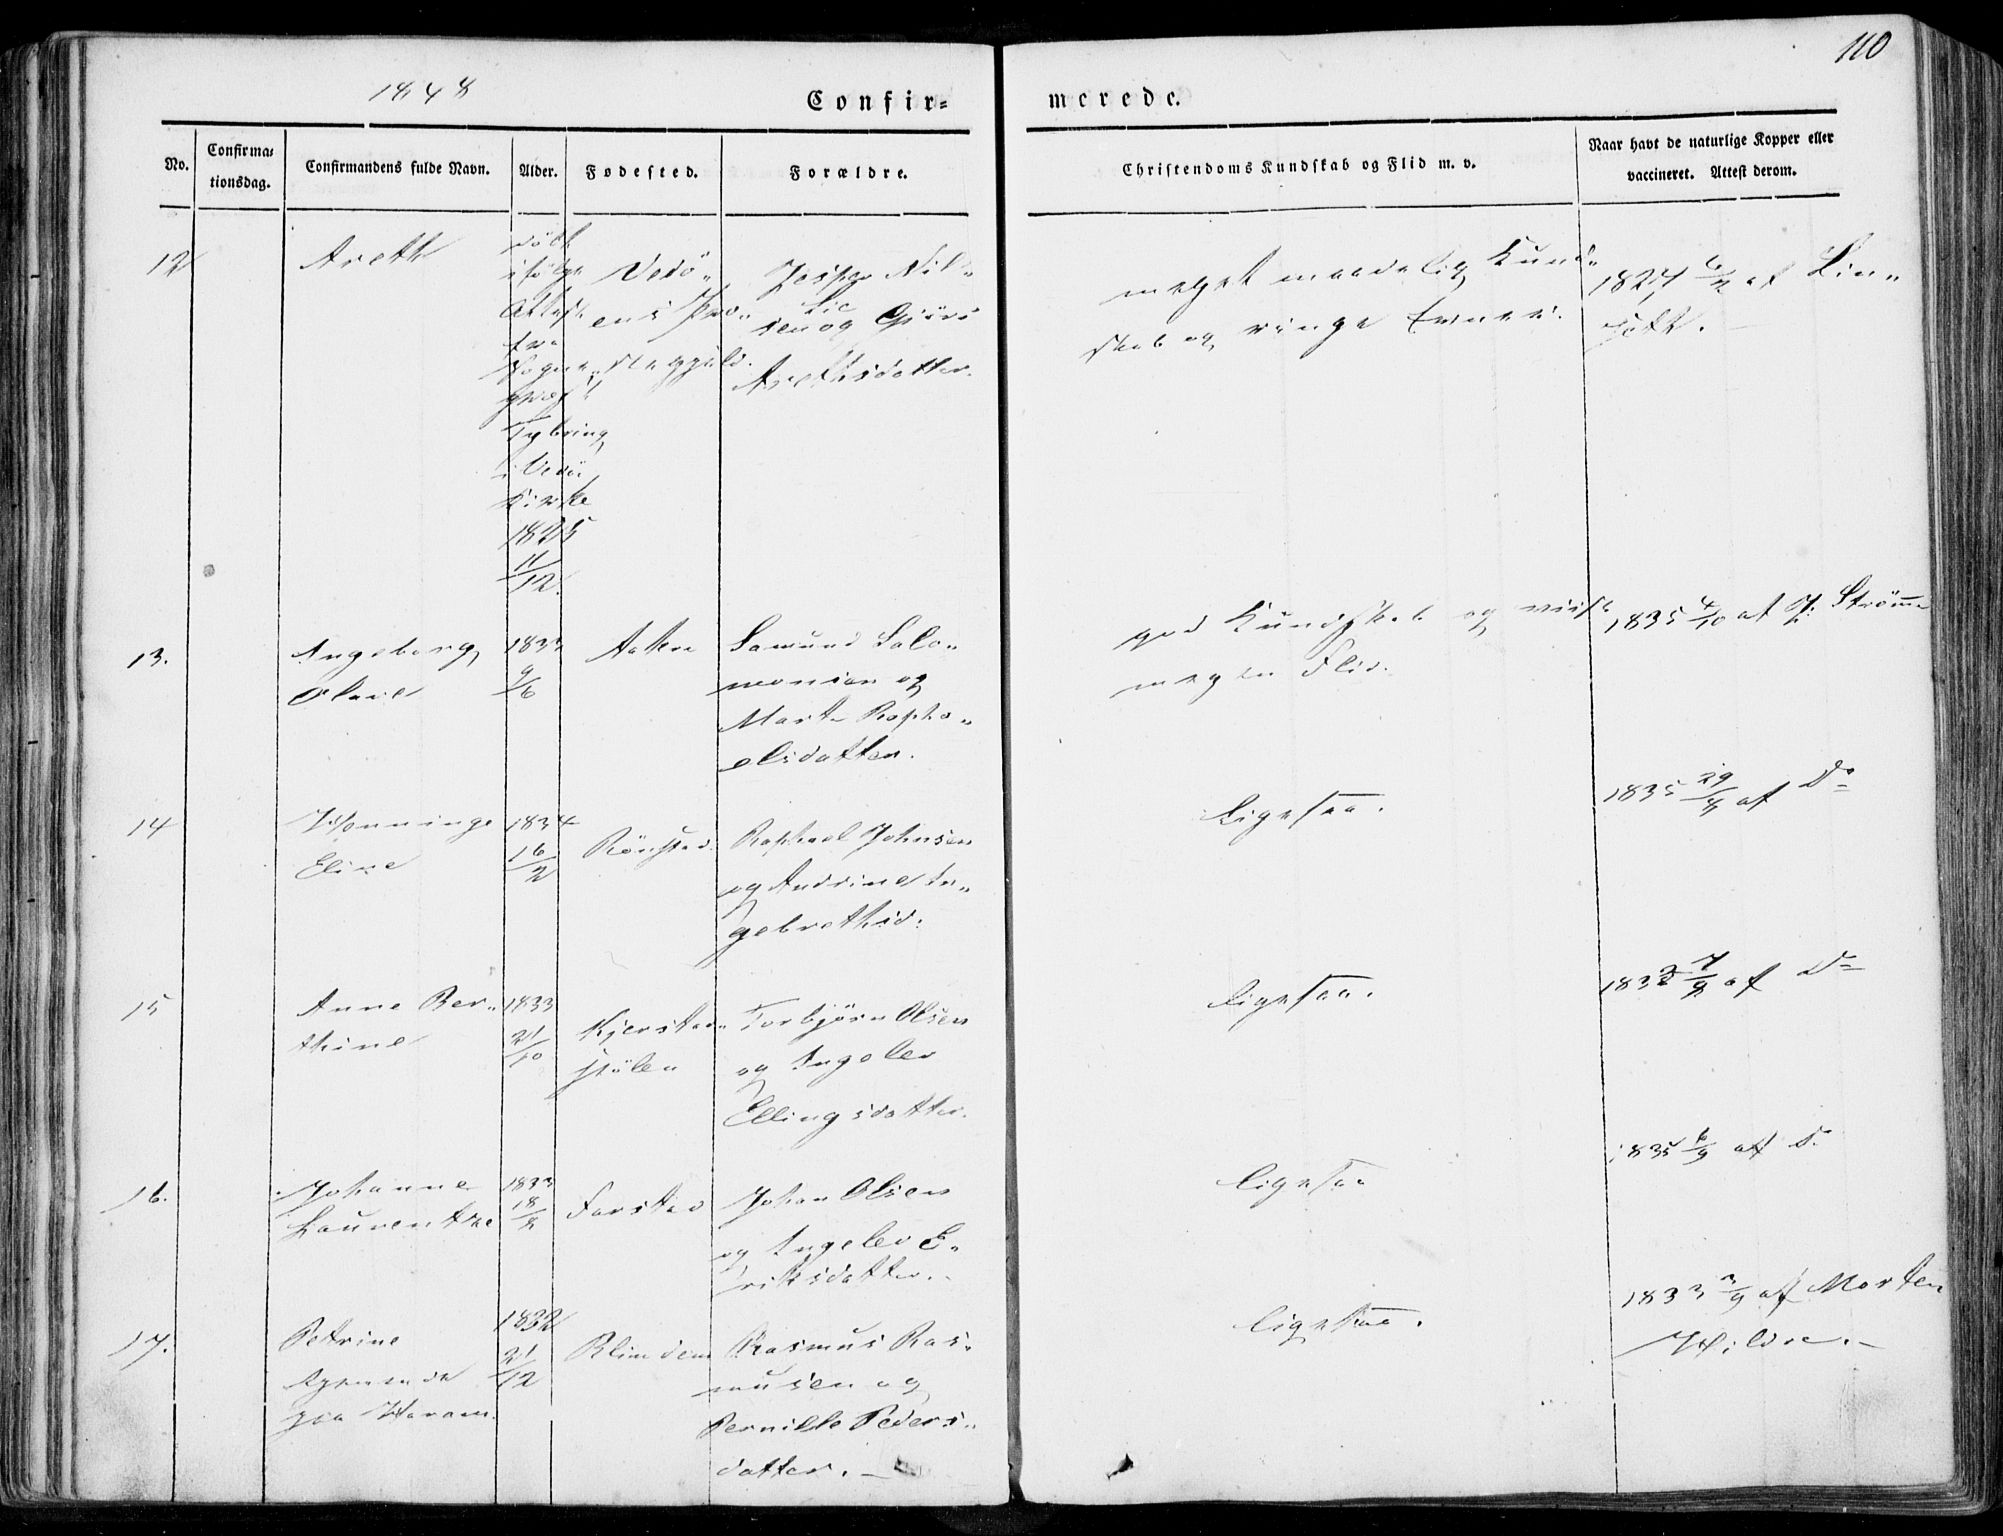 110
1848
Confir-
merede.
No.
Confirma-
tionsdag.
Confirmandens fulde Navn.
Alder.
Fødested.
Forældre.
Christendoms Kundskab og Flid m. v.
Naar havt de naturlige Kopper eller
vaccineret. Attest derom.
12
Areth
født
ifølge
Attest
fra
Sogne-
præst
Tybring
i Vedö
Kirke
1825
11/12
Vedö-
ens Præ-
stegjeld.
Jesper Nil-
sen og Gjöri
Arethsdatter.
meget maadelig Kund-
skab og ringe Evner.
af Lin-
13.
Ingeborg
Olave
1833
9/6
Aakre
Samund Salo-
monsen og
Marte Rapha-
elsdatter.
god Kundskab og viist
megen Flid.
1835 4/10 af P. Strömme
14
Henninge
Eline
1834
16/2
Rönstad
Raphael Johnsen
og Andrine In-
gebrethsd:
ligesaa.
1835 29/8 af Do
15
Anne Ber-
thine
1833
21/10
Kjerstad-
stölen
Torbjørn Olsen
og Ingelev
Ellingsdatter.
ligesaa.
7/9 af Do
16.
Johanne
Laurentze
1833
18/8
Farstad
Johan Olsen
og Ingelev E-
riksdatter.
ligesaa
1835 6/9 af D.
17.
Petrine
paa Haram.
1832
21/12
Blindem
Rasmus Ras-
musen og
Pernille Peders-
datter.
ligesaa.
1833 3/9 af Morten
Hildre.